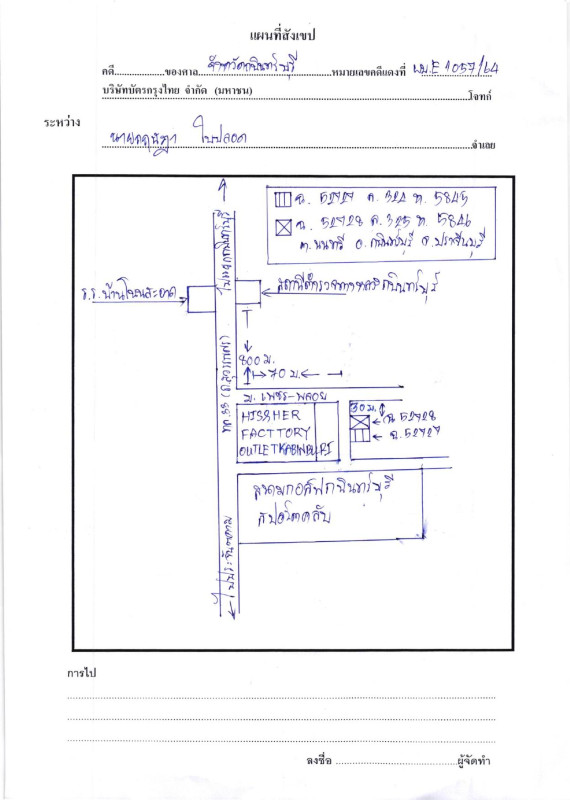 แผนที่สังเขป
คดี ของศาล จังหวัดกบินทร์บุรี หมายเลขคดีแดงที่ ผบ.E 1057/64
บริษัทบัตรกรุงไทย จำกัด (มหาชน) โจทก์
ระหว่าง
นายกฤษฎา ใบปลอด จำเลย
ฉ. 52727 ล. 324 ท. 5845
ฉ. 52728 ล. 325 ท. 5846
ต.นนทรี อ.กบินทร์บุรี จ.ปราจีนบุรี
ไปแยกกบินทร์บุรี
ร.ร.บ้านโนนสะอาด
สถานีตำรวจทางหลวงกบินทร์บุรี
800 ม.
70 ม.
ทล.33 (ถ.สุวรรณศร)
ม. เพชร-พลอย
HISSHER
FACTTORY
OUTLETKABINBURI
30 ม.
ฉ. 52728
ฉ. 52727
สนามกอล์ฟกบินทร์บุรี
สปอร์ตคลับ
ไปประจันตคาม
การไป
ลงชื่อ ผู้จัดทำ